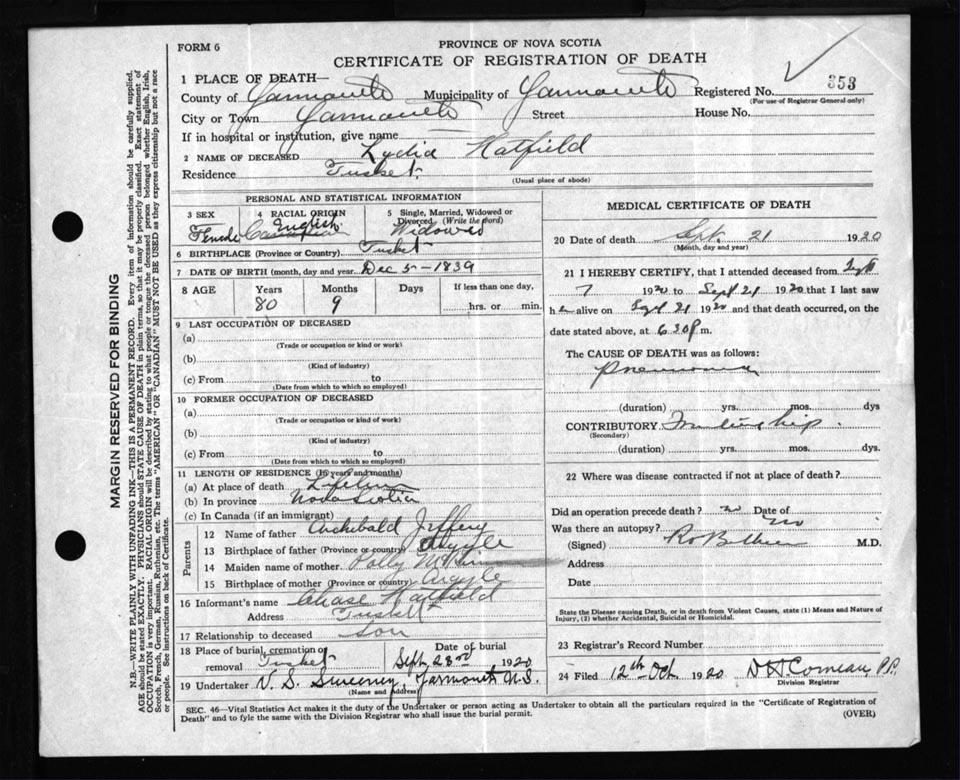 FORM 6
PROVINCE OF NOVA SCOTIA
CERTIFICATE OF REGISTRATION OF DEATH
353
1 PLACE OF DEATH—
County of Yarmouth Municipality of Yarmouth Registered No.
(For use of Registrar General only)
City or Town Yarmouth Street House No.
If in hospital or institution, give name
2 NAME OF DECEASED Lydia Hatfield
Residence Tusket
(Usual place of abode)
PERSONAL AND STATISTICAL INFORMATION
3 SEX Female
4 RACIAL ORIGIN English
5 Single, Married, Widowed or Divorced (Write the word) Widowed
6 BIRTHPLACE (Province or Country) Tusket
7 DATE OF BIRTH (month, day and year) Dec 5 - 1839
8 AGE Years Months Days If less than one day,
80 9 hrs. or min.
9 LAST OCCUPATION OF DECEASED
(a)
(Trade or occupation or kind or work)
(b)
(Kind of industry)
(c) From to
(Date from which to which so employed)
10 FORMER OCCUPATION OF DECEASED
(a)
(Trade or occupation or kind of work)
(b)
(Kind of industry)
(c) From to
(Date from which to which so employed)
11 LENGTH OF RESIDENCE (in years and months)
(a) At place of death Lifetime
(b) In province Nova Scotia
(c) In Canada (if an immigrant)
Parents
12 Name of father Archibald Jeffery
13 Birthplace of father (Province or country) Argyle
14 Maiden name of mother Polly
15 Birthplace of mother (Province or country) Argyle
16 Informant's name Chase Hatfield
Address Tusket
17 Relationship to deceased Son
18 Place of burial, cremation or removal Tusket
Date of burial Sept. 23rd 1920
19 Undertaker V. S. Sweeney, Yarmouth N.S.
(Name and Address)
MEDICAL CERTIFICATE OF DEATH
20 Date of death Sept. 21 1920
(Month, day and year)
21 I HEREBY CERTIFY, that I attended deceased from Sept
7 1920 to Sept 21 1920 that I last saw
h alive on Sept 21 1920 and that death occurred, on the
date stated above, at 6 30 P m.
The CAUSE OF DEATH was as follows:
Pneumonia
(duration) yrs. mos. dys
CONTRIBUTORY hip
(Secondary)
(duration) yrs. mos. dys
22 Where was disease contracted if not at place of death?
Did an operation precede death? no Date of
Was there an autopsy? no
(Signed) M.D.
Address
Date
State the Disease causing Death, or in death from Violent Causes, state (1) Means and Nature of
Injury, (2) whether Accidental, Suicidal or Homicidal.
23 Registrar's Record Number
24 Filed 12th Oct. 1920 Comeau, P.P.
Division Registrar
SEC. 46—Vital Statistics Act makes it the duty of the Undertaker or person acting as Undertaker to obtain all the particulars required in the "Certificate of Registration of
Death" and to fyle the same with the Division Registrar who shall issue the burial permit. (OVER)
MARGIN RESERVED FOR BINDING
N.B.—WRITE PLAINLY WITH UNFADING INK—THIS IS A PERMANENT RECORD. Every item of information should be carefully supplied.
AGE should be stated EXACTLY. PHYSICIANS should STATE CAUSE OF DEATH in plain terms, so that it may be properly classified. Exact statement of
OCCUPATION is very important. RACIAL ORIGIN will be described by stating to what people or tongue the deceased person belonged whether English, Irish,
Scotch, French, German, Russian, Ruthenian, etc. The terms "AMERICAN" OR "CANADIAN" MUST NOT BE USED as they express citizenship but not a race
or people. See instructions on back of Certificate.